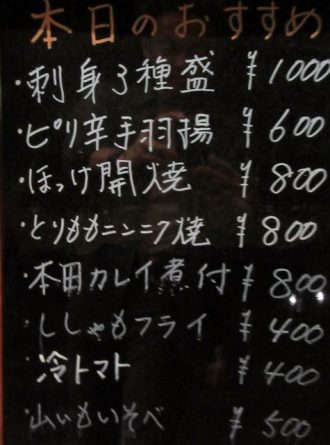 本日のおすすめ
・刺身3種盛 ¥1000
・ピリ辛手羽揚 ¥600
・ほっけ開焼 ¥800
・とりももニンニク焼 ¥800
・本田カレイ煮付 ¥800
・ししゃもフライ ¥400
冷トマト ¥400
山いもいそべ ¥500